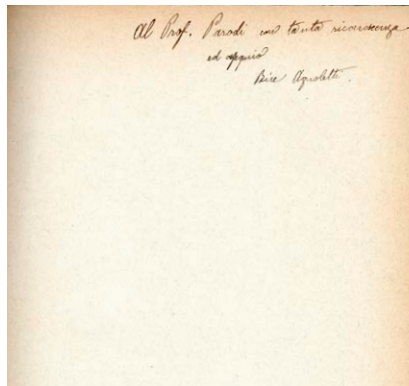 Al Prof. Parodi con tanta riconoscenza
ed ossequio
Bice Agnoletti.